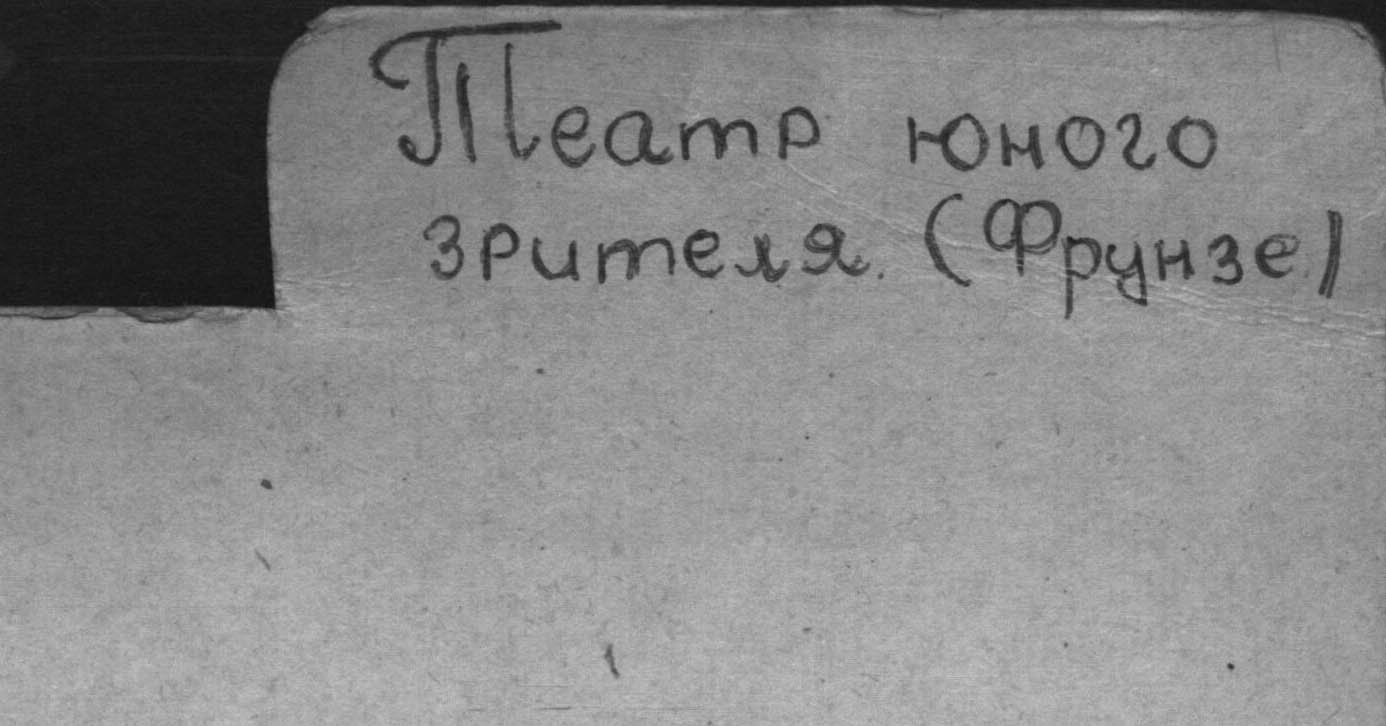 Театр юного
зрителя. (Фрунзе)